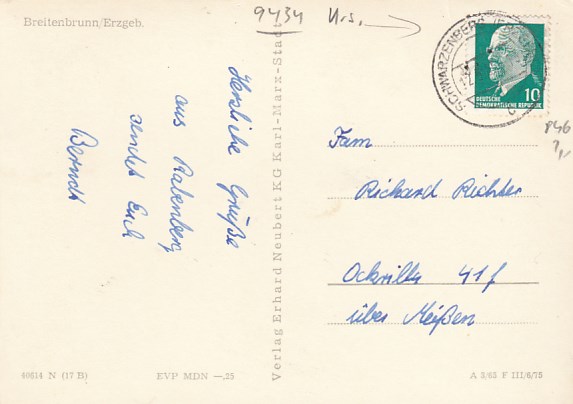 Breitenbrunn/Erzgeb.
9434
Herzliche Grüße
aus Rabenberg
sendet Euch
Berndt
Verlag Erhard Neubert KG Karl-Marx-Stadt
SCHWARZENBERG
10
DEUTSCHE
DEMOKRATISCHE REPUBLIK
Fam
Richard Richter
Ockrilla 41f
über Meißen
40614 N (17 B)
EVP MDN —,25
A 3/63 F III/6/75